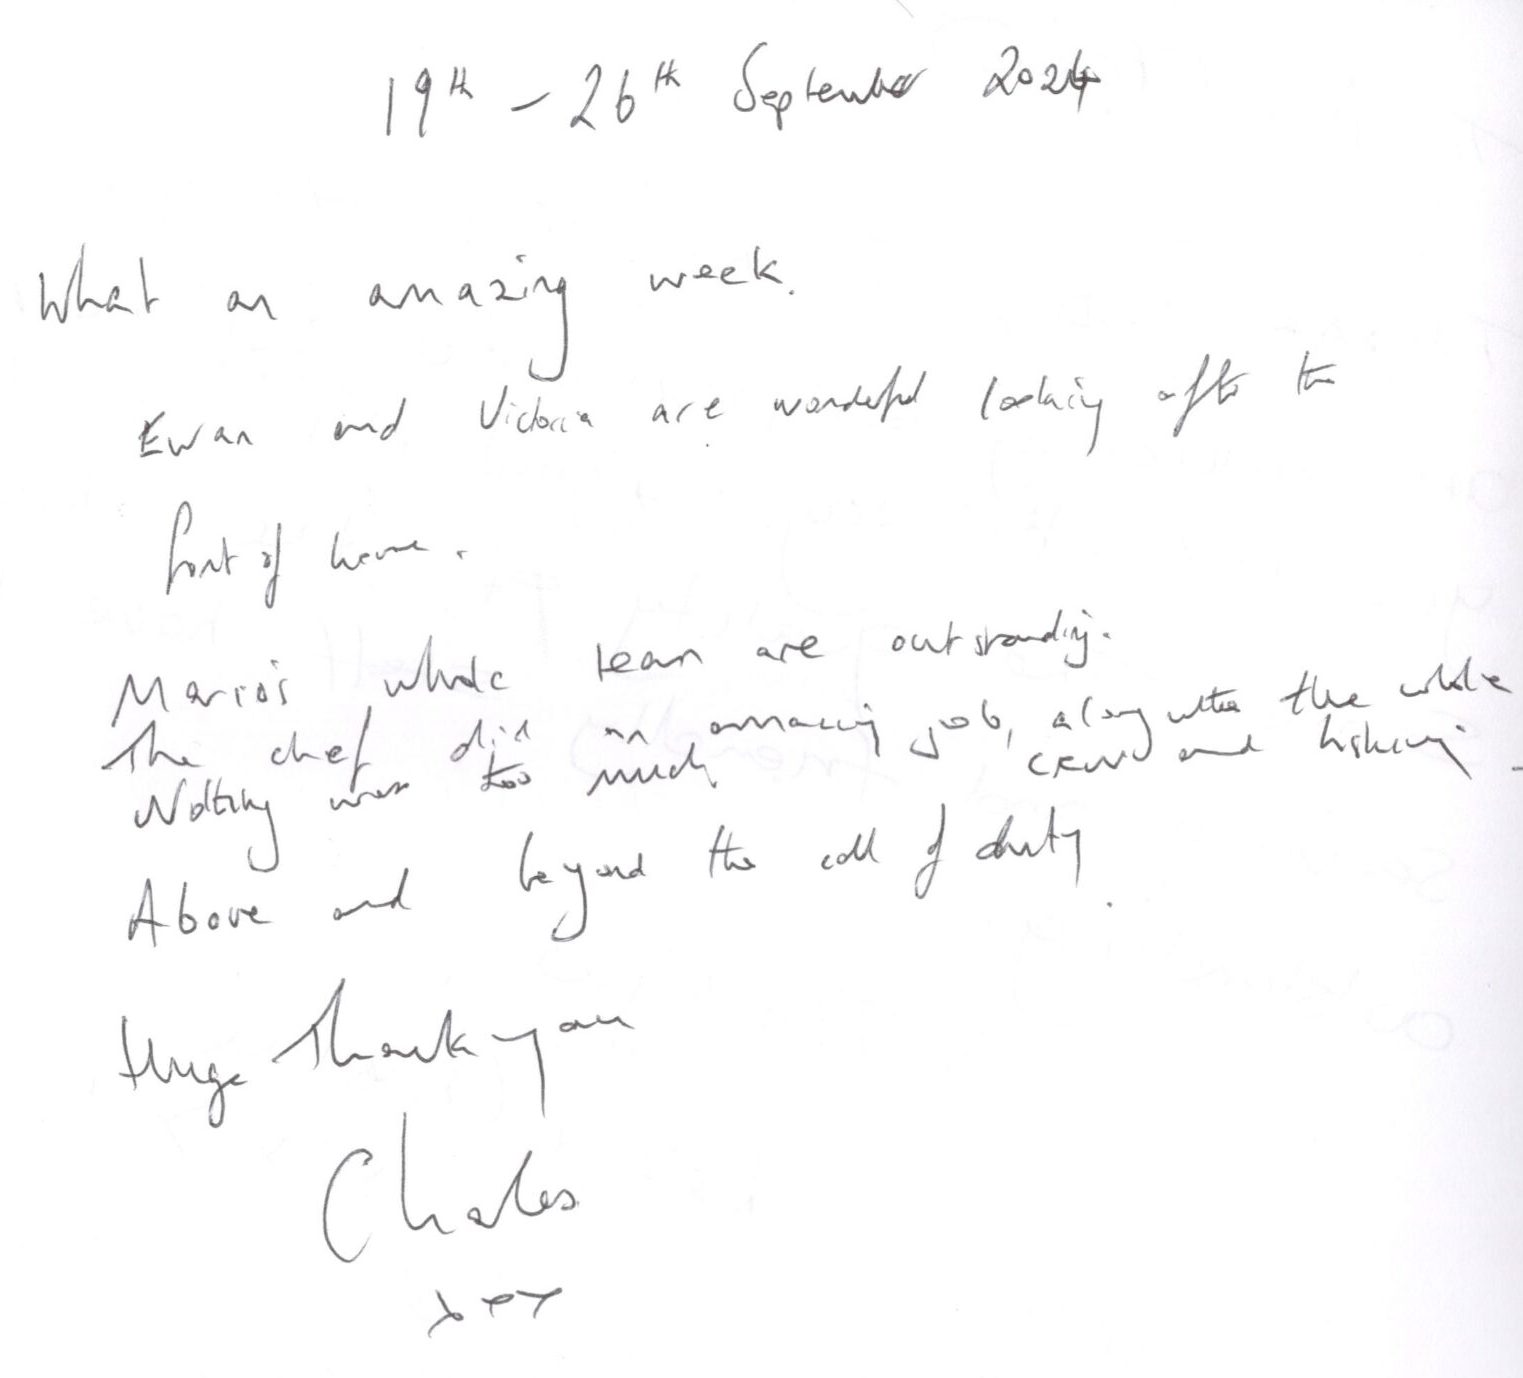 19th - 26th September 2024
What an amazing week.
Ewan and Victoria are wonderful looking after the
front of house.
Mario's whole team are outstanding.
The chef did an amazing job, along with the whole
crew and
Nothing was too much
Above and beyond the call of duty.
Huge Thank you
Charles
xxx